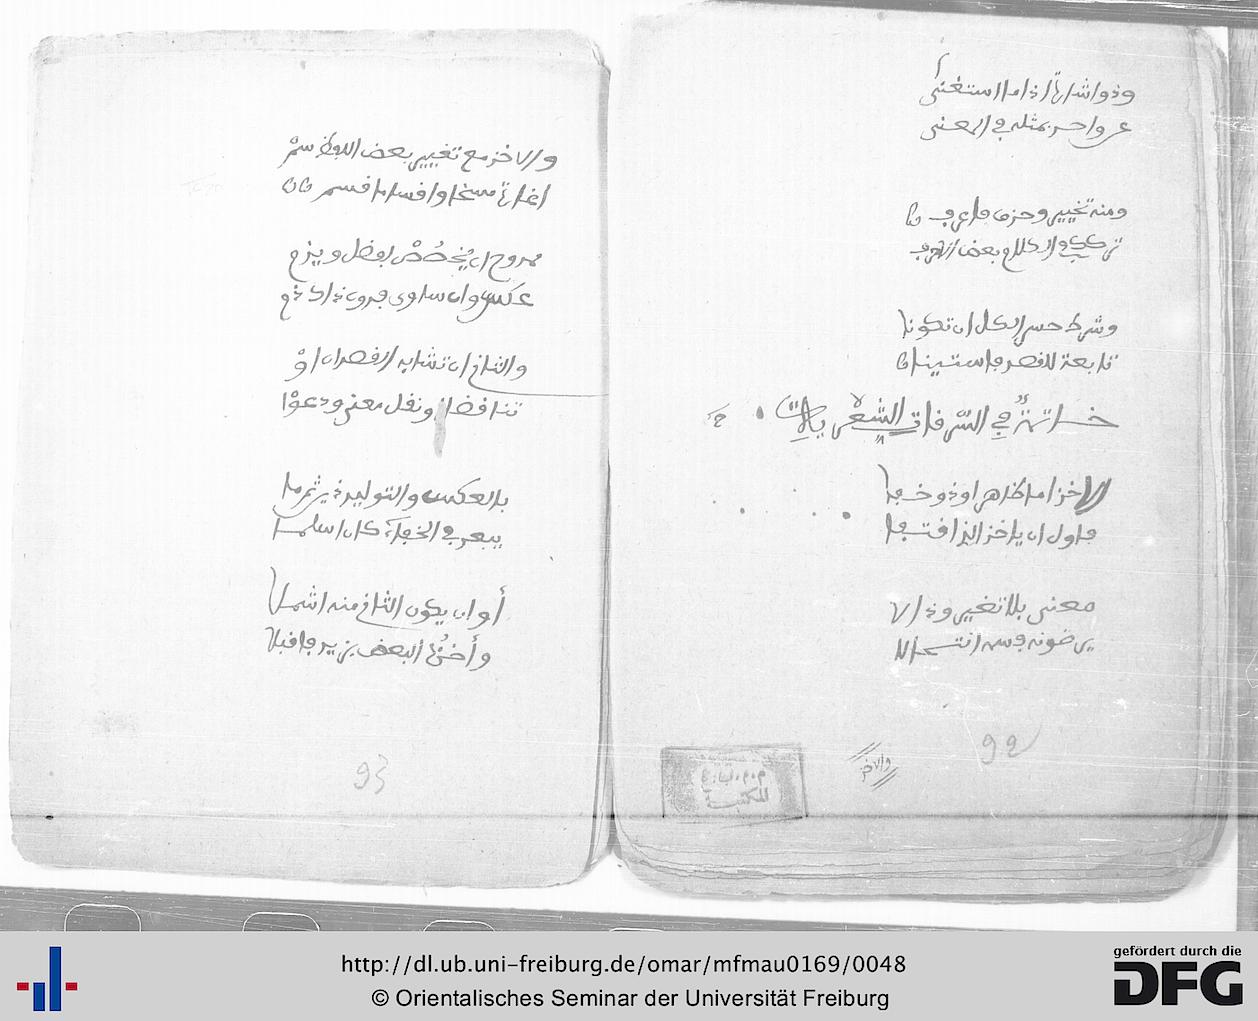 وذو اشارة اذا ما استغنى
عن واحد بمثله في المعنى
ومنه تغيير وحرف ما عرف
وشرط حسن الكل ان تكونا
تابعة للقصد ما استبينا
خاتمة في السرقات الشعريات
الاخذ اما ظاهر او ذو خفا
فاول ان ياخذ الذ اقتفا
معنى بلا تغيير وذا لا
يرضونه وسمه انتحالا
92
والاخذ
للمكتبة
والاخذ مع تغيير بعض اللفظ سم
اغارة مسخا واقساما قسم
ممدوح ان يخصص بفضل ويذم
عكس وان ساوى فدون ذاك ذم
والثاني ان تشابه القصدان او
تناقضا ونقل معنى ودعوا
بالعكس والتوليد ذي ثم ما
يبعد في الخفاء كان اسلما
أو ان يكون الثاني منه اشملا
وأخذها البعض بزيد ما قبلا
93
http://dl.ub.uni-freiburg.de/omar/mfmau0169/0048
© Orientalisches Seminar der Universität Freiburg
gefördert durch die
DFG